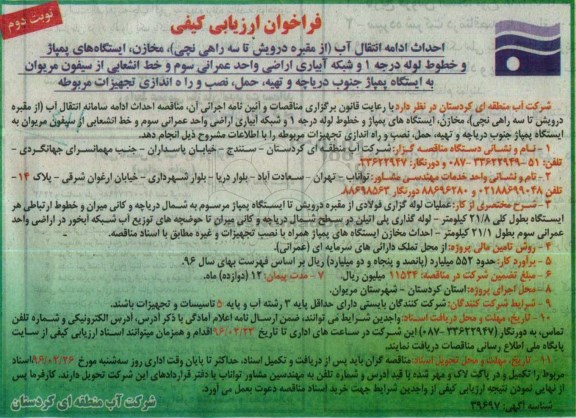 نوبت دوم
فراخوان ارزیابی کیفی
احداث ادامه انتقال آب (از مقبره درویش تا سه راهی نچی)، مخازن، ایستگاه‌های پمپاژ
و خطوط لوله درجه ۱ و شبکه آبیاری اراضی واحد عمرانی سوم و خط انشعابی از سیفون مریوان
به ایستگاه پمپاژ جنوب دریاچه و تهیه، حمل، نصب و راه اندازی تجهیزات مربوطه
شرکت آب منطقه ای کردستان در نظر دارد با رعایت قانون برگزاری مناقصات و آئین نامه اجرائی آن، مناقصه احداث ادامه سامانه انتقال آب (از مقبره
درویش تا سه راهی نچی)، مخازن، ایستگاه های پمپاژ و خطوط لوله درجه ۱ و شبکه آبیاری اراضی واحد عمرانی سوم و خط انشعابی از سیفون مریوان به
ایستگاه پمپاژ جنوب دریاچه و تهیه، حمل، نصب و راه اندازی تجهیزات مربوطه را با اطلاعات مشروح ذیل انجام دهد.
۱ - نام و نشانی دستگاه مناقصه گزار: شرکت آب منطقه ای کردستان - سنندج - خیابان پاسداران - جنب مهمانسرای جهانگردی -
تلفن: ۵۱-۳۳۶۲۲۹۴۹-۰۸۷ و دورنگار: ۳۳۶۲۲۹۴۷
۲ - نام و نشانی واحد خدمات مهندسی مشاور: تواناب - تهران - سعادت آباد - بلوار دریا - بلوار شهرداری - خیابان ارغوان شرقی - پلاک ۱۴ -
تلفن: ۰۲۱۸۸۶۹۹۰۴۸ و ۸۸۶۹۶۲۸۰ دورنگار: ۸۸۶۹۸۵۶۳
۳ - شرح مختصری از کار: عملیات لوله گذاری فولادی از مقبره درویش تا ایستگاه پمپاژ مرسوم به شمال دریاچه و کانی میران و خطوط ارتباطی هر
ایستگاه بطول کلی ۲۱/۸ کیلومتر - لوله گذاری پلی اتیلن در سطح شمال دریاچه و کانی میران تا حوضچه های توزیع آب شبکه آبخور در اراضی واحد
عمرانی سوم بطول ۲۱/۱ کیلومتر - احداث مخازن ایستگاه های پمپاژ همراه با نصب تجهیزات و غیره مطابق با اسناد مناقصه.
۴ - روش تامین مالی پروژه: از محل تملک دارائی های سرمایه ای (عمرانی).
۵ - برآورد کار: حدود ۵۵۲ میلیارد (پانصد و پنجاه و دو میلیارد) ریال بر اساس فهرست بهای سال ۹۶.
۶ - مبلغ تضمین شرکت در مناقصه: ۱۱۵۳۴ میلیون ریال. ۷ - مدت پیمان: ۱۲ (دوازده) ماه.
۸ - محل اجرای پروژه: استان کردستان - شهرستان مریوان.
۹ - شرایط شرکت کنندگان: شرکت کنندگان بایستی دارای حداقل پایه ۳ رشته آب و پایه ۵ تاسیسات و تجهیزات باشند.
۱۰ - تاریخ، مهلت و محل دریافت اسناد: واجدین شرایط می توانند، ضمن ارسال نامه اعلام آمادگی با ذکر آدرس، آدرس الکترونیکی و شماره تلفن
تماس، به دورنگار (۳۳۶۲۲۹۴۷-۰۸۷) این شرکت در ساعت های اداری تا تاریخ ۹۶/۰۲/۲۳ اقدام و همزمان میتوانند اسناد ارزیابی کیفی از سایت
پایگاه ملی اطلاع رسانی مناقصات دریافت نمایند.
۱۱ - تاریخ، مهلت و محل تحویل اسناد: مناقصه گران باید پس از دریافت و تکمیل اسناد، حداکثر تا پایان وقت اداری روز سه‌شنبه مورخ ۹۶/۰۲/۲۶ اسناد
مربوط را تکمیل و در پاکت لاک و مهر شده با قید آدرس و شماره تلفن به مهندسین مشاور تواناب یا دفتر قراردادهای این شرکت تحویل دارند. کارفرما پس
از نهایی نمودن نتیجه ارزیابی کیفی از واجدین شرایط جهت خرید اسناد مناقصه دعوت بعمل می آورد.
شناسه آگهی: ۳۹۶۹۷
شرکت آب منطقه ای کردستان